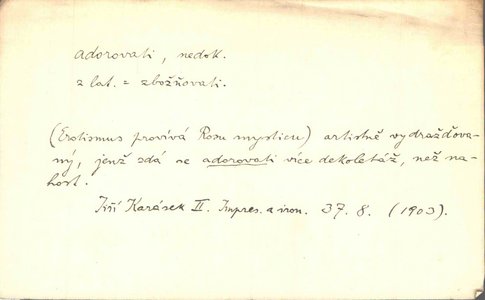 adorovati, nedok.
z lat. = zbožňovati.
(Erotismus provívá Rosu mysticu) artistně vydražďova-
ný, jenž zdá se adorovati více dekoletáž, než na-
host.
Jiří Karásek II. Impres. a iron. 37. 8. (1903).